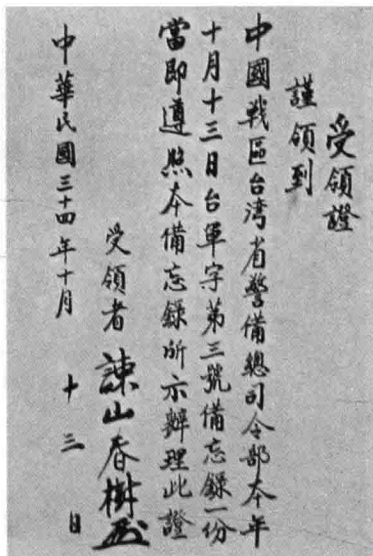 受領證
謹領到
中國戰區台湾省警備總司令部本年
十月十三日台軍字第三號備忘錄一份
當即遵照本備忘錄所示辦理此證
受領者 諫山春樹
中華民國三十四年十月 十三日